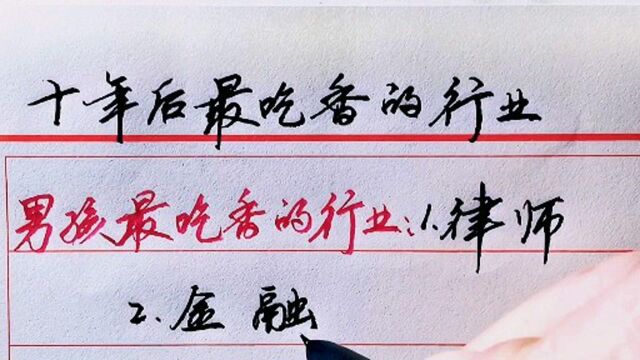 十年后最吃香的行业
男孩最吃香的行业:1.律师
2.金融